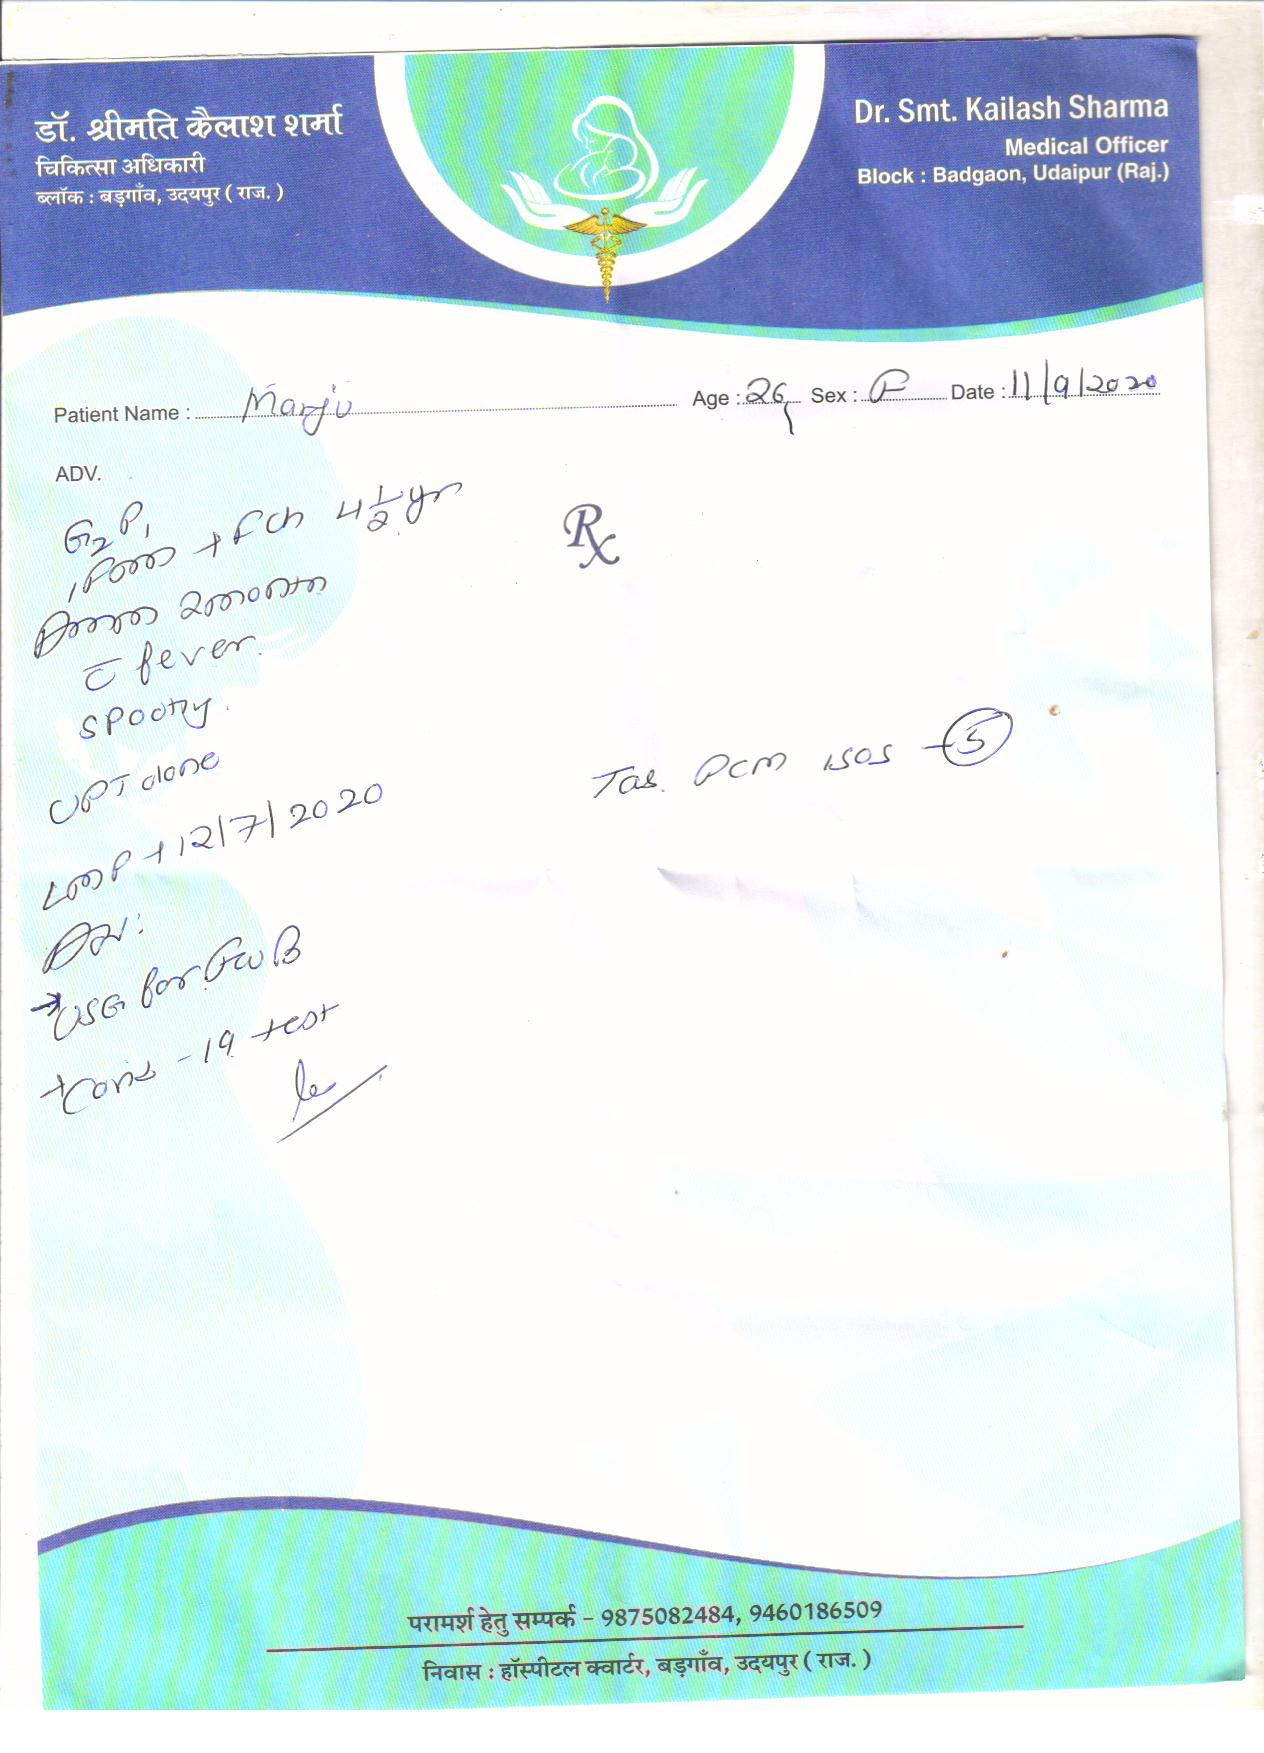 डॉ. श्रीमति कैलाश शर्मा
चिकित्सा अधिकारी
ब्लॉक : बड़गाँव, उदयपुर ( राज. )
Dr. Smt. Kailash Sharma
Medical Officer
Block : Badgaon, Udaipur (Raj.)
Patient Name : Manju Age : 26 Sex : F Date : 11/9/2020
ADV.
G2P1
+ FCh 4 1/2 yr
Rx
c̄ fever.
UPT done
Tab. PCM 1SOS - 5
LMP + 12/7/2020
Adv:
→ USG for FWB
- 19 test
परामर्श हेतु सम्पर्क – 9875082484, 9460186509
निवास : हॉस्पीटल क्वार्टर, बड़गाँव, उदयपुर ( राज. )